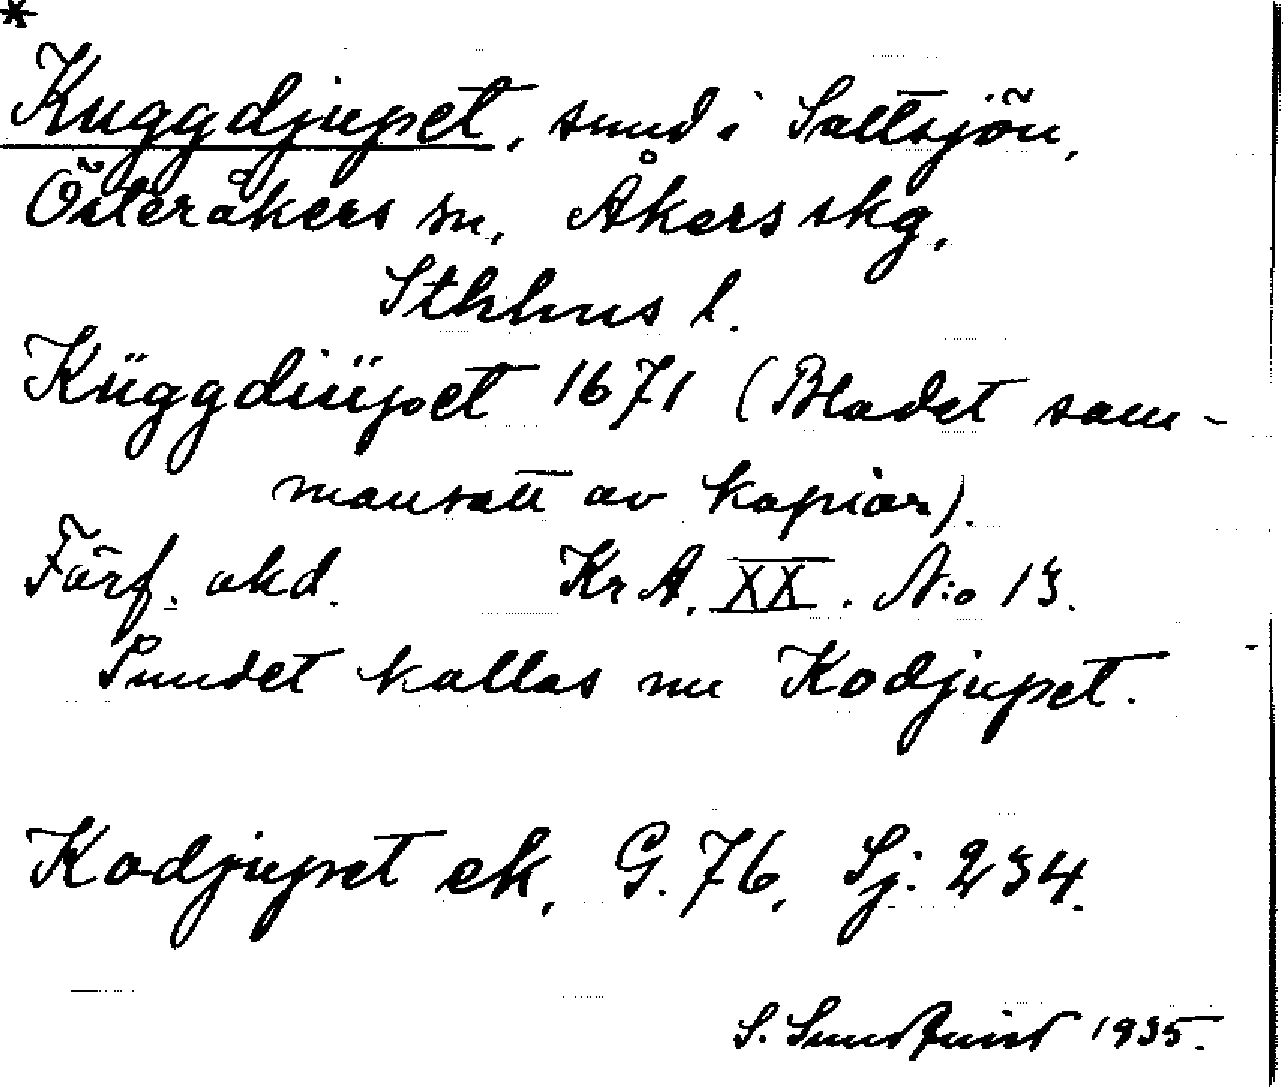 *
Kuggdjupet, sund i Saltsjön,
Österåkers sn, Åkers skg,
Sthlms l.
Küggdiüpet 1671 (Bladet sam-
mansatt av kopior).
Förf. okd. KrA. XX. N:o 13.
Sundet kallas nu Kodjupet.
Kodjupet ek, G. 76, Sj: 234.
S. Sundquist 1935.